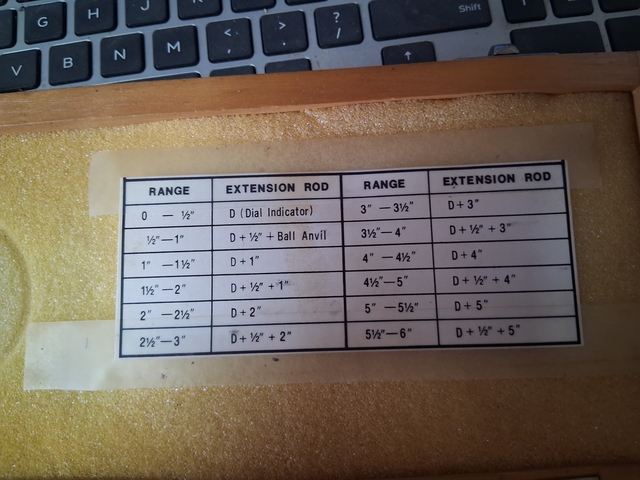 G H J K L : "
V B N M < , > . ? / Shift
RANGE EXTENSION ROD RANGE EXTENSION ROD
0 — ½" D (Dial Indicator) 3" — 3½" D + 3"
½" — 1" D + ½" + Ball Anvil 3½" — 4" D + ½" + 3"
1" — 1½" D + 1" 4" — 4½" D + 4"
1½" — 2" D + ½" + 1" 4½" — 5" D + ½" + 4"
2" — 2½" D + 2" 5" — 5½" D + 5"
2½" — 3" D + ½" + 2" 5½" — 6" D + ½" + 5"